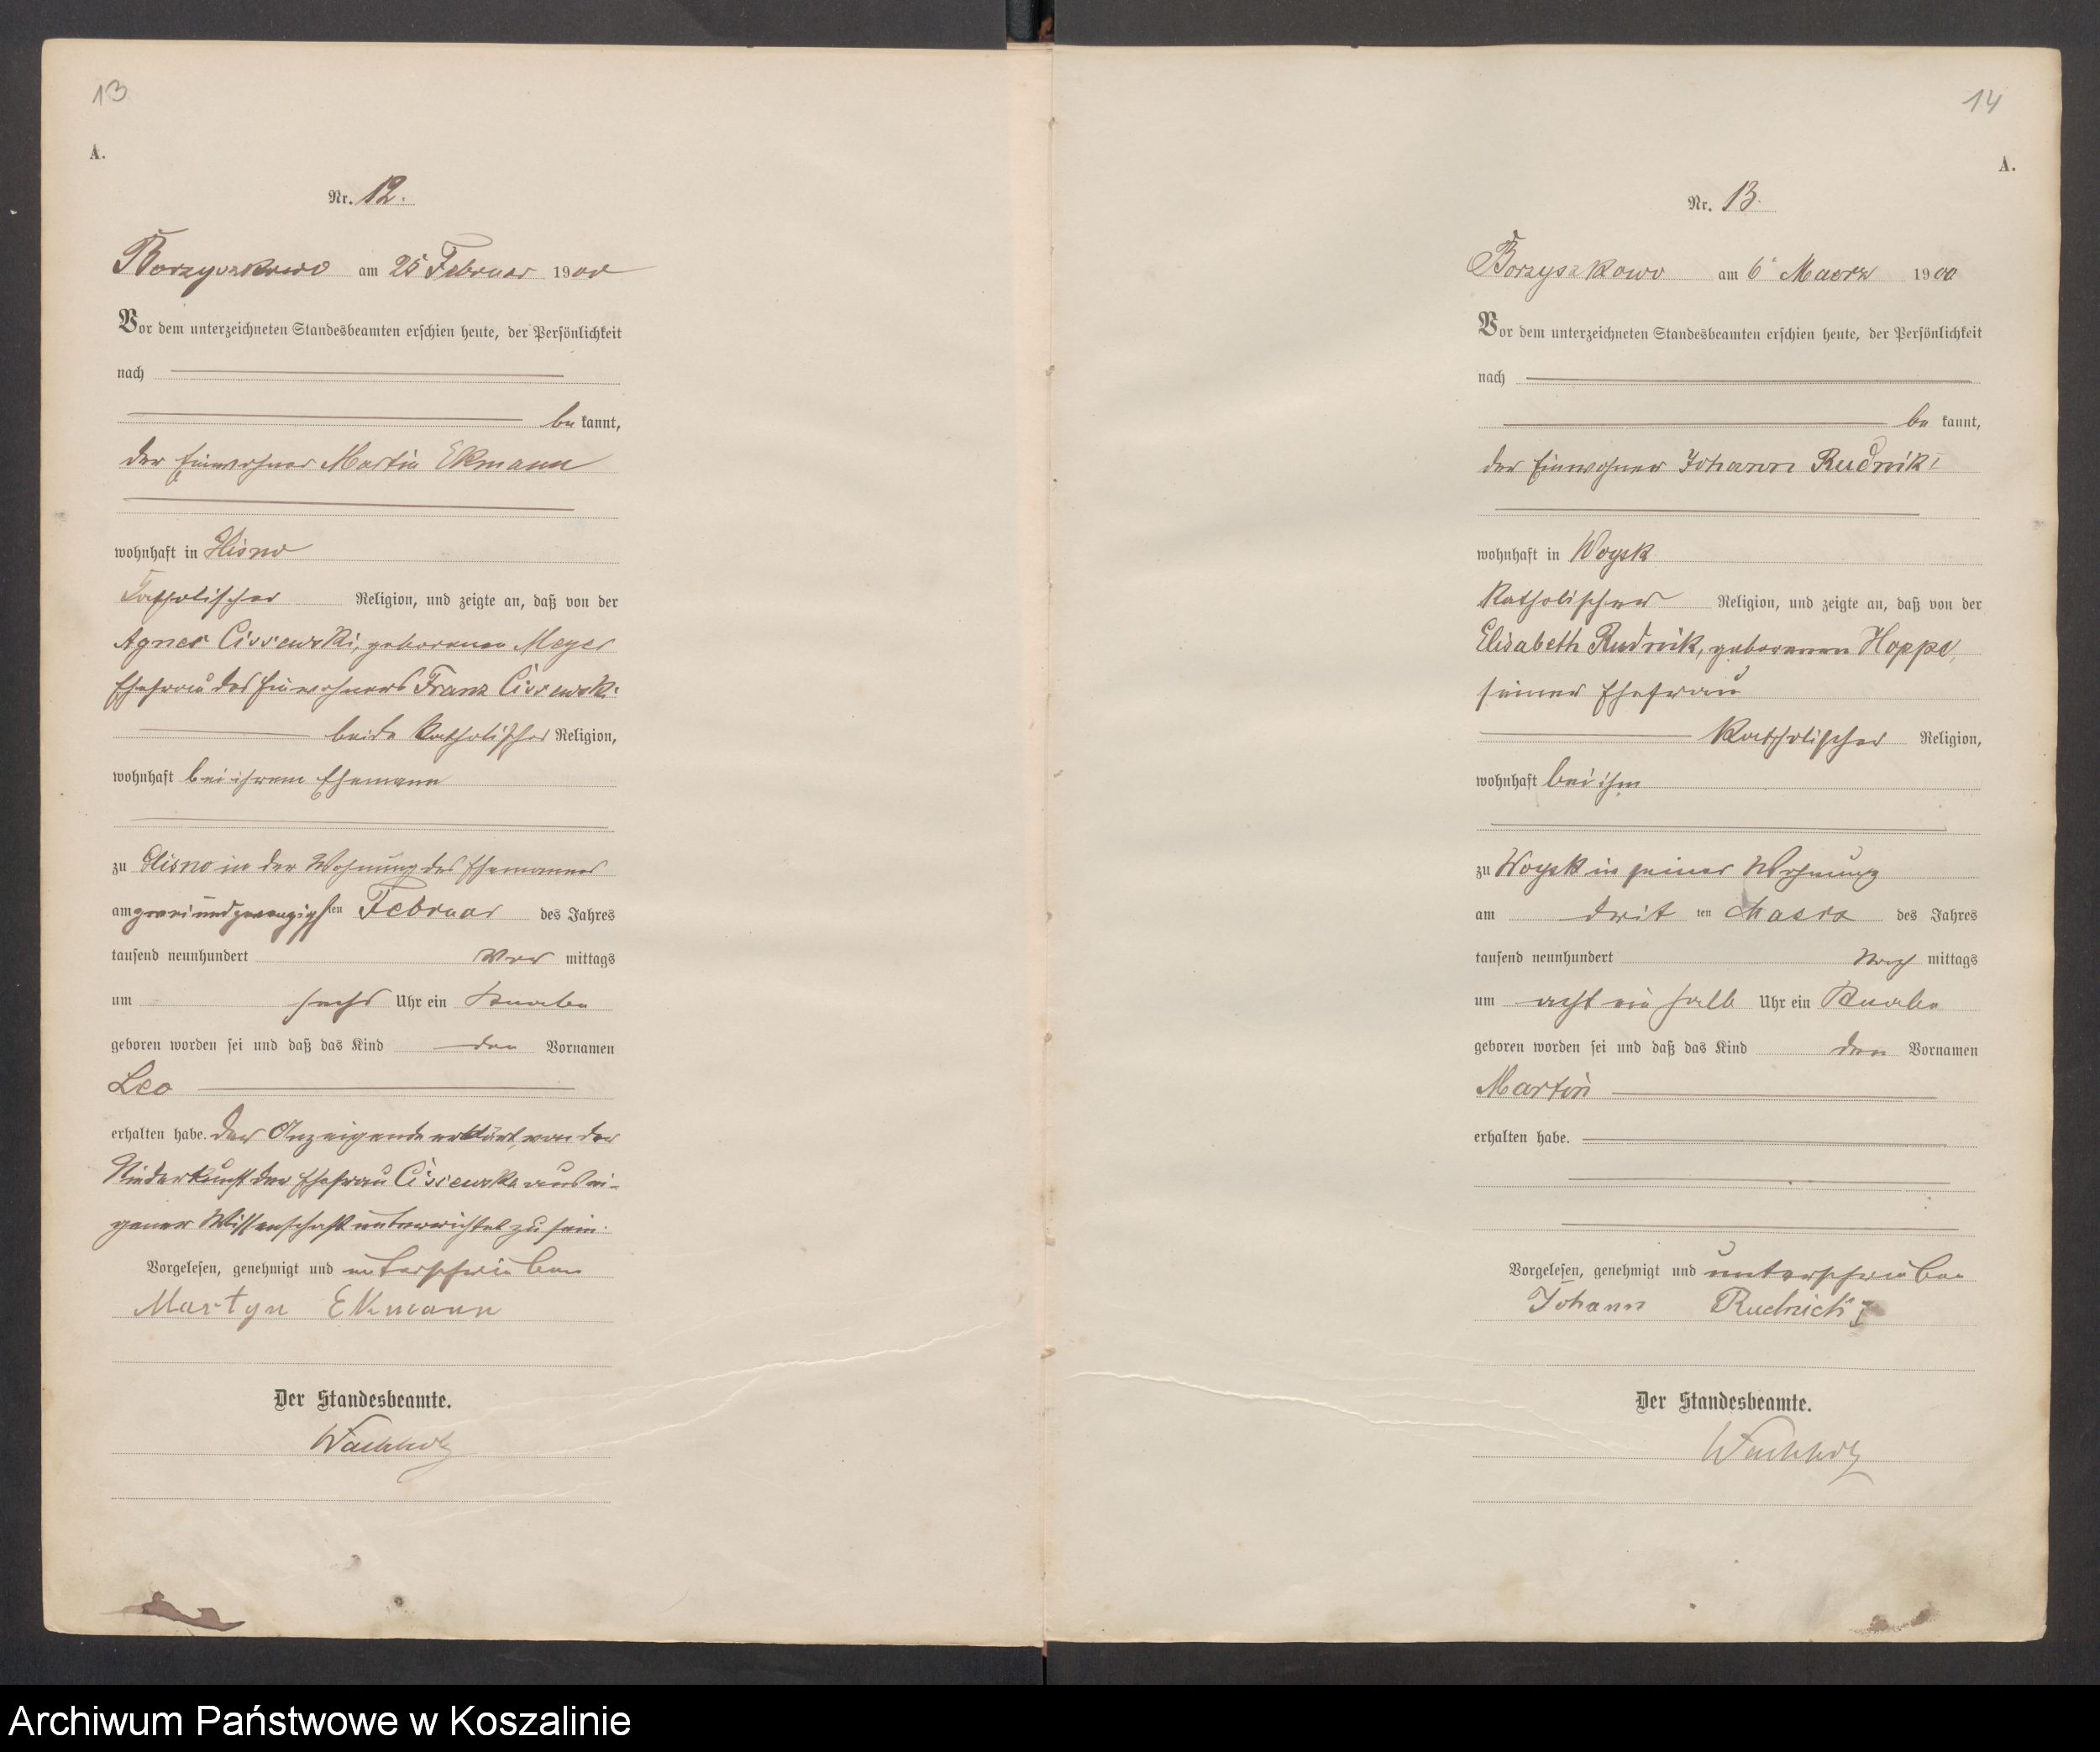 13
A.
Nr. 12.
Borzyszkowo am 25 Februar 1900
Vor dem unterzeichneten Standesbeamten erschien heute, der Persönlichkeit
nach
be kannt,
der Einwohner Martin Ekmann
wohnhaft in
katholischer Religion, und zeigte an, daß von der
Agnes Cissewski, geborenen Meyer
Ehefrau des Einwohners Franz Cissewski
beide katholischer Religion,
wohnhaft bei ihrem Ehemann
zu in der Wohnung des Ehemannes
am zwei und zwanzigsten Februar des Jahres
tausend neunhundert Vor mittags
um sechs Uhr ein Knabe
geboren worden sei und daß das Kind den Vornamen
Leo
erhalten habe. Der Anzeigende erklärt, von der
Niederkunft der Ehefrau Cissewska aus ei-
gener Wissenschaft unterrichtet zu sein.
Vorgelesen, genehmigt und unterschrieben
Martyn Ekmann
Der Standesbeamte.
Wachholz
14
A.
Nr. 13.
Borzyszkowo am 6 Maerz 1900
Vor dem unterzeichneten Standesbeamten erschien heute, der Persönlichkeit
nach
be kannt,
der Einwohner Johann Rudnik
wohnhaft in Woysk
katholischer Religion, und zeigte an, daß von der
Elisabeth Rudnik, geborenen Hoppe,
seiner Ehefrau
katholischer Religion,
wohnhaft bei ihm
zu Woysk in seiner Wohnung
am dritten Maerz des Jahres
tausend neunhundert Nach mittags
um acht ein halb Uhr ein Knabe
geboren worden sei und daß das Kind den Vornamen
Martin
erhalten habe.
Vorgelesen, genehmigt und unterschrieben
Johann Rudnick
Der Standesbeamte.
Wachholz
Archiwum Państwowe w Koszalinie